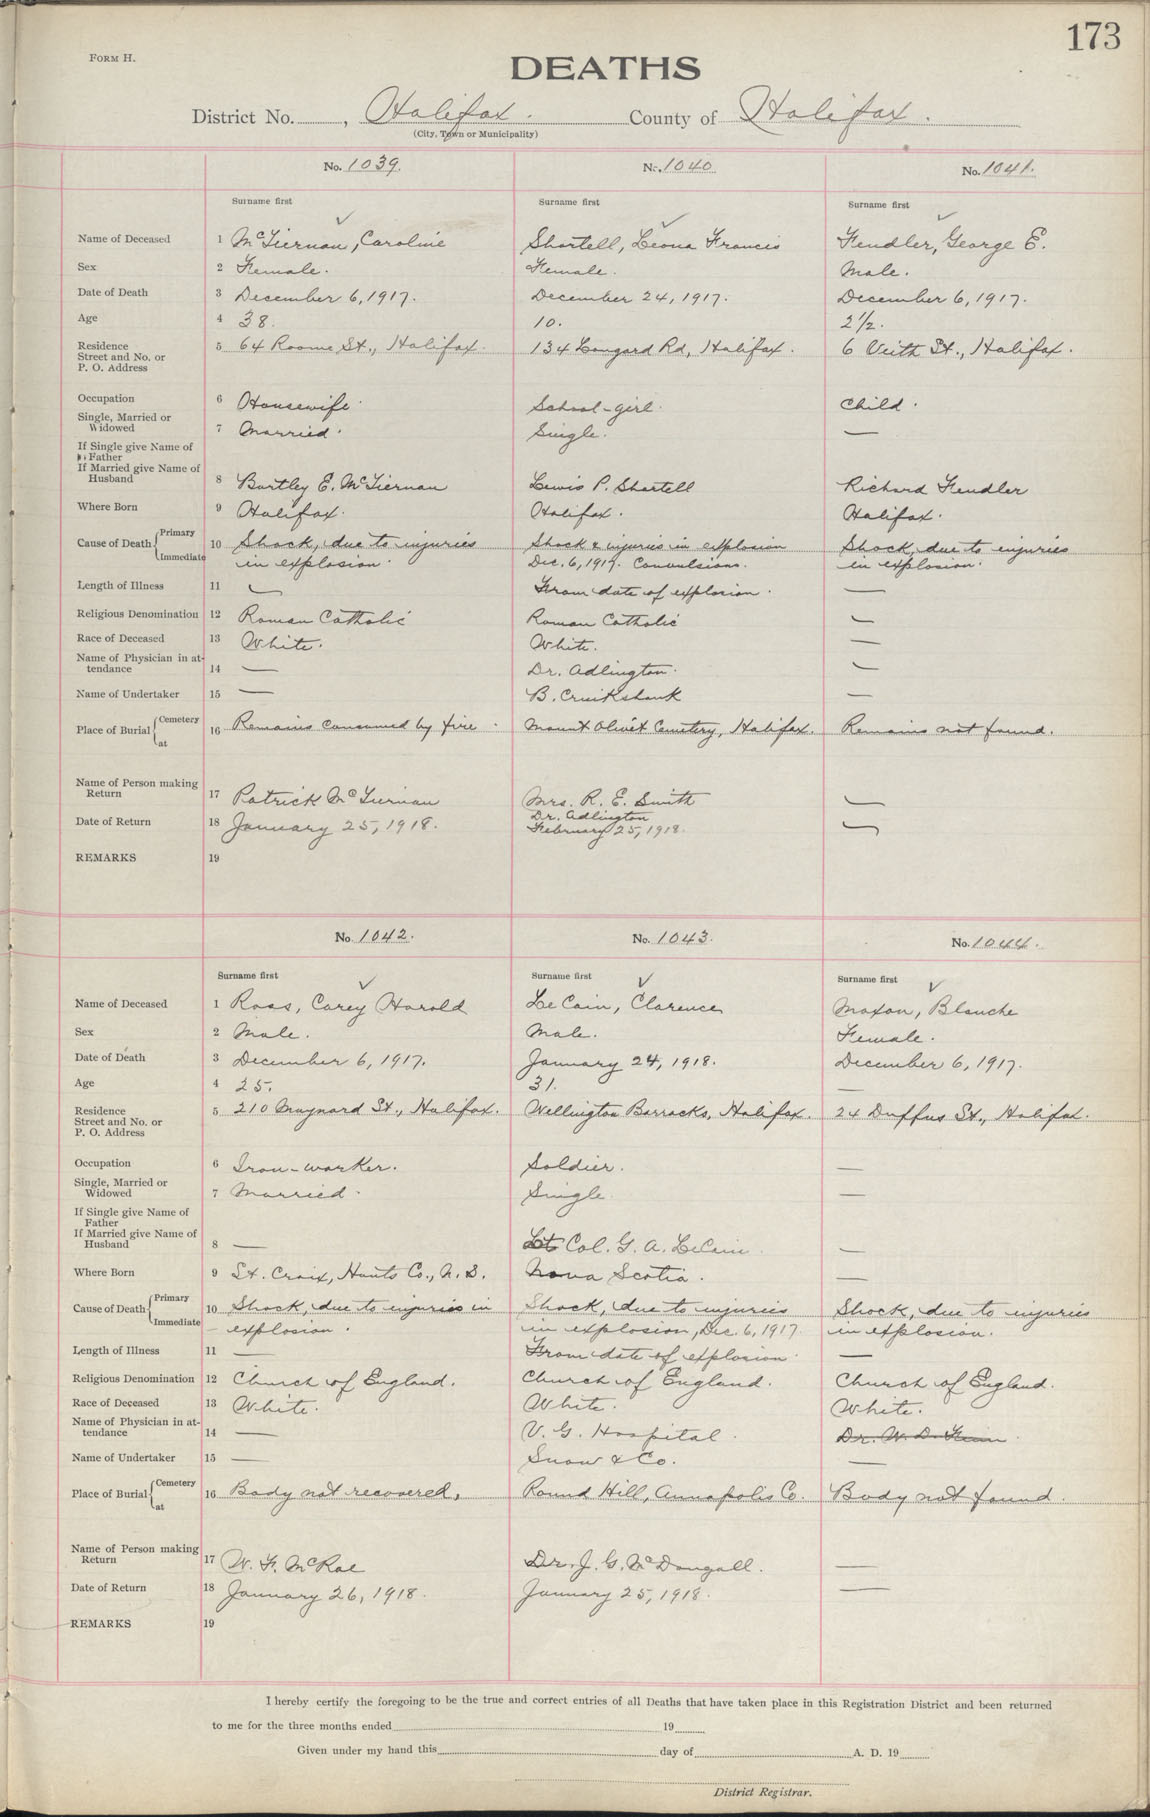 173
FORM H.
DEATHS
District No. , Halifax. County of Halifax.
(City, Town or Municipality)
No. 1039. No. 1040 No. 1041.
Surname first Surname first Surname first
Name of Deceased 1 McTiernan, Caroline Shortell, Leona Francis Fendler, George E.
Sex 2 Female. Female. Male.
Date of Death 3 December 6, 1917. December 24, 1917. December 6, 1917.
Age 4 38. 10. 2 1/2.
Residence 5 64 Roome St., Halifax. 134 Longard Rd, Halifax. 6 Veith St., Halifax.
Street and No. or
P. O. Address
Occupation 6 Housewife. School-girl. Child.
Single, Married or
Widowed 7 Married. Single. —
If Single give Name of
Father
If Married give Name of
Husband 8 Bartley E. McTiernan Lewis P. Shortell Richard Fendler
Where Born 9 Halifax. Halifax. Halifax.
Primary
Cause of Death 10 Shock, due to injuries Shock & injuries in explosion Shock, due to injuries
Immediate in explosion. Dec. 6, 1917. Convulsions. in explosion.
Length of Illness 11 — From date of explosion. —
Religious Denomination 12 Roman Catholic Roman Catholic —
Race of Deceased 13 White. White. —
Name of Physician in at-
tendance 14 — Dr. Adlington. —
Name of Undertaker 15 — B. Cruikshank —
Cemetery
Place of Burial 16 Remains consumed by fire. Mount Olivet Cemetery, Halifax. Remains not found.
at
Name of Person making
Return 17 Patrick McTiernan Mrs. R. E. Smith —
Dr. Adlington
Date of Return 18 January 25, 1918. February 25, 1918. —
REMARKS 19
No. 1042. No. 1043. No. 1044.
Surname first Surname first Surname first
Name of Deceased 1 Ross, Carey Harold LeCain, Clarence Moxon, Blanche
Sex 2 Male. Male. Female.
Date of Death 3 December 6, 1917. January 24, 1918. December 6, 1917.
Age 4 25. 31. —
Residence 5 210 Maynard St., Halifax. Wellington Barracks, Halifax. 24 Duffus St., Halifax.
Street and No. or
P. O. Address
Occupation 6 Iron-worker. Soldier. —
Single, Married or
Widowed 7 Married. Single —
If Single give Name of
Father
If Married give Name of
Husband 8 — Lt Col. G. A. LeCain —
Where Born 9 St. Croix, Hants Co., N. S. Nova Scotia. —
Primary
Cause of Death 10 Shock, due to injuries in Shock, due to injuries Shock, due to injuries
Immediate explosion. in explosion, Dec. 6, 1917. in explosion.
Length of Illness 11 — From date of explosion. —
Religious Denomination 12 Church of England. Church of England. Church of England.
Race of Deceased 13 White. White. White.
Name of Physician in at-
tendance 14 — V. G. Hospital. Dr. W. D.
Name of Undertaker 15 — Snow & Co. —
Cemetery
Place of Burial 16 Body not recovered. Round Hill, Annapolis Co. Body not found.
at
Name of Person making
Return 17 W. F. McRae Dr. J. G. McDougall. —
Date of Return 18 January 26, 1918. January 25, 1918. —
REMARKS 19
I hereby certify the foregoing to be the true and correct entries of all Deaths that have taken place in this Registration District and been returned
to me for the three months ended 19
Given under my hand this day of A. D. 19
District Registrar.